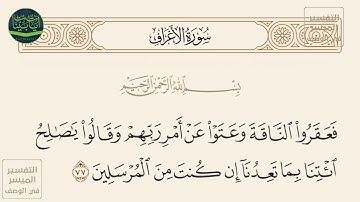 التفسير
الميسر
سُورَةُ الأَعْرَافِ
بِسْمِ اللَّهِ الرَّحْمَٰنِ الرَّحِيمِ
فَعَقَرُوا۟ ٱلنَّاقَةَ وَعَتَوْا۟ عَنْ أَمْرِ رَبِّهِمْ وَقَالُوا۟ يَٰصَٰلِحُ
ٱئْتِنَا بِمَا تَعِدُنَآ إِن كُنتَ مِنَ ٱلْمُرْسَلِينَ ٧٧
التفسير
الميسر
في الوصف